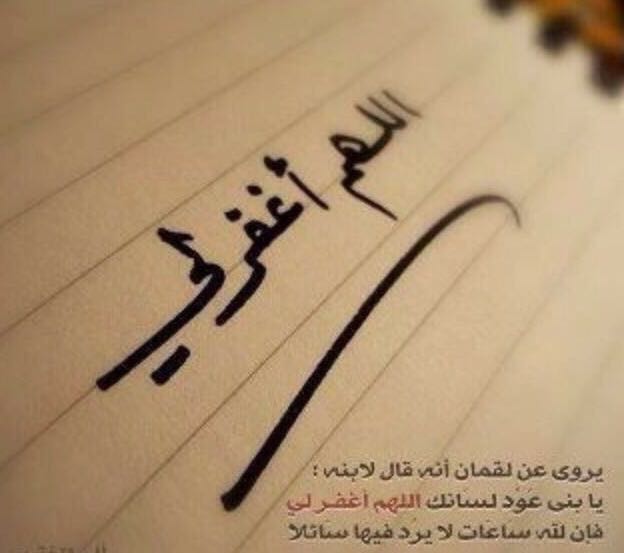 اللهم أغفر لي
يروى عن لقمان أنه قال لابنه :
يا بنى عَوّد لسانك اللهم أغفر لي
فان لله ساعات لا يرَد فيها سائلا